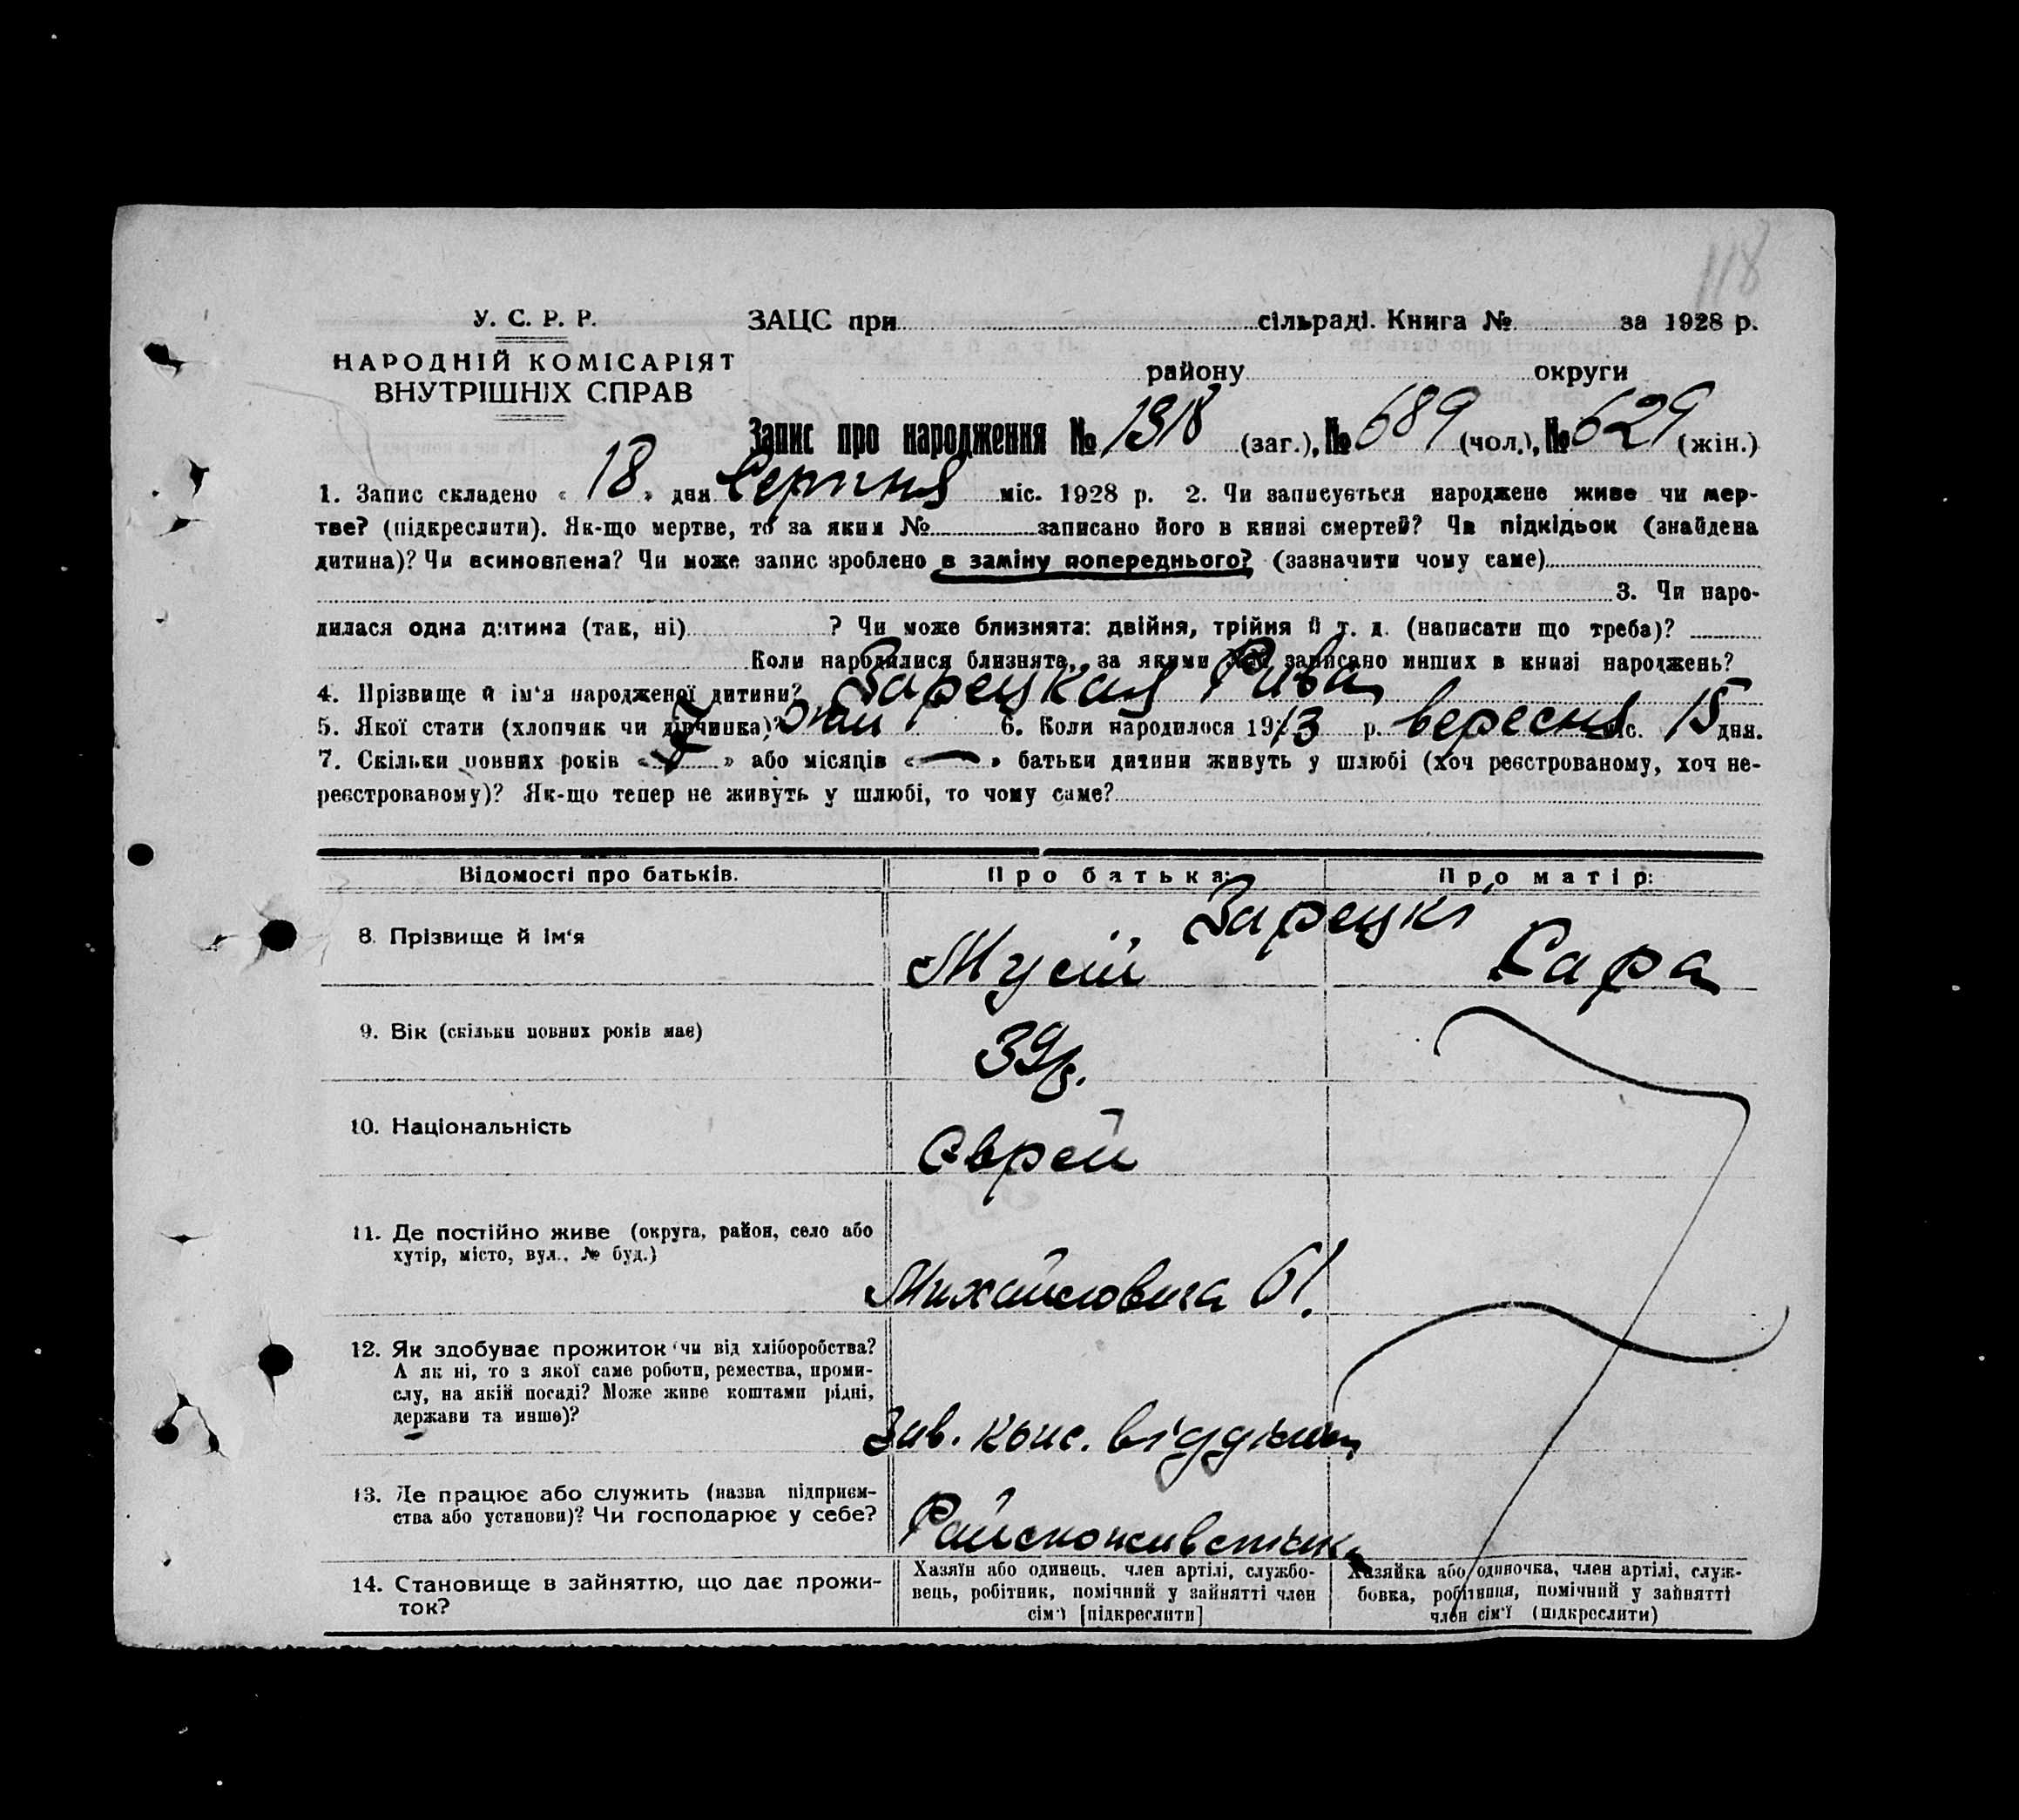 118
У. С. Р. Р.
НАРОДНІЙ КОМІСАРІЯТ
ВНУТРІШНІХ СПРАВ
ЗАЦС при сільраді. Книга № за 1928 р.
району округи
Запис про народження № 1318 (заг.), № 689 (чол.), № 629 (жін.)
1. Запис складено « 18 » дня Серпня міс. 1928 р. 2. Чи записується народжене живе чи мер-
тве? (підкреслити). Як-що мертве, то за яким № записано його в книзі смертей? Чи підкідьок (знайдена
дитина)? Чи всиновлена? Чи може запис зроблено в заміну попереднього? (зазначити чому саме)
3. Чи наро-
дилася одна дитина (так, ні) ? Чи може близнята: двійня, трійня й т. д. (написати що треба)?
Коли народилися близнята, за якими №№ записано инших в книзі народжень?
4. Прізвище й ім'я народженої дитини? Зарецкая Рива
5. Якої стати (хлопчик чи дівчинка)? жін 6. Коли народилося 1913 р. вересня міс. 15 дня.
7. Скільки повних років « » або місяців « — » батьки дитини живуть у шлюбі (хоч реєстрованому, хоч не-
реєстрованому)? Як-що тепер не живуть у шлюбі, то чому саме?
Відомості про батьків. Про батька: Про матір:
8. Прізвище й ім'я Зарецкі
Мусій Сара
9. Вік (скільки повних років має) 39 р.
10. Національність Єврей
11. Де постійно живе (округа, район, село або
хутір, місто, вул., № буд.)
Михайловича 61.
12. Як здобуває прожиток чи від хліборобства?
А як ні, то з якої саме роботи, ремества, проми-
слу, на якій посаді? Може живе коштами рідні,
держави та инше)?
Зав. відділом
13. Де працює або служить (назва підприєм-
ства або установи)? Чи господарює у себе?
14. Становище в зайняттю, що дає прожи-
ток?
Хазяїн або одинець, член артілі, службо-
вець, робітник, помічний у зайнятті член
сім'ї [підкреслити]
Хазяйка або одиночка, член артілі, служ-
бовка, робітниця, помічний у зайнятті
член сім'ї (підкреслити)